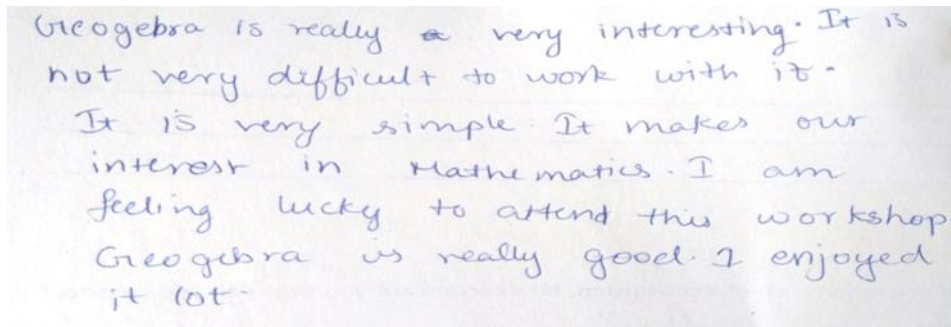 Geogebra is really very interesting. It is
not very difficult to work with it.
It is very simple. It makes our
interest in Mathematics. I am
feeling lucky to attend this workshop
Geogebra is really good. I enjoyed
it lot